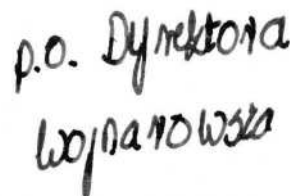 p.o. Dyrektora
Wojnarowska